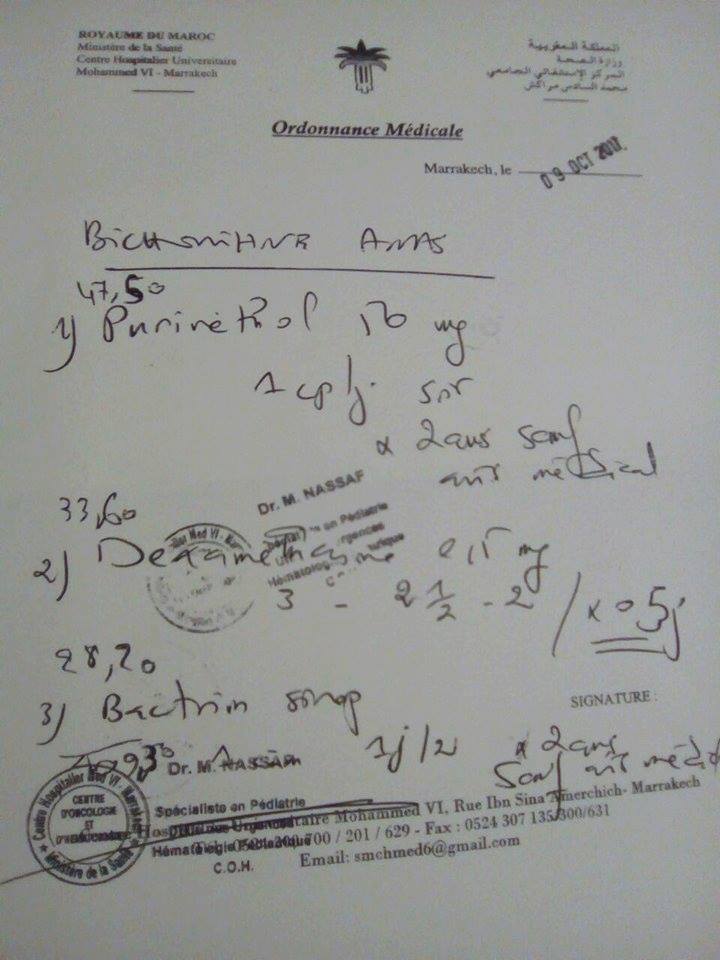 ROYAUME DU MAROC
Ministère de la Santé
Centre Hospitalier Universitaire
Mohammed VI - Marrakech
المملكة المغربية
وزارة الصحة
المركز الإستشفائي الجامعي
محمد السادس مراكش
Ordonnance Médicale
Marrakech, le 09 OCT 2017
ANAS
47,50
1) Purinethol 50 mg
1 cp/j. soir
x 2 ans sauf
avis médical
Dr. M. NASSAF
en Pédiatrie
33,60
2) Dexaméthasone 0,5 mg
3 - 2 1/2 - 2 / x 05j
28,20
3) Bactrim sirop
SIGNATURE :
1j/2 x 2 ans
sauf avis médi
Dr. M. NASSAF
Spécialiste en Pédiatrie
Hématologie Pédiatrique
C.O.H.
Centre Hospitalier Med VI - Marrakech
CENTRE
D'ONCOLOGIE
ET
D'HEMATOLOGIE
Ministère de la Santé
Mohammed VI, Rue Ibn Sina Amerchich- Marrakech
700 / 201 / 629 - Fax : 0524 307 135/300/631
Email: smchmed6@gmail.com